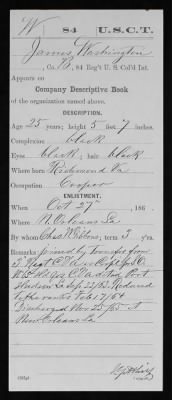 W | 84 | U.S.C.T.
James Washington
Co. B, 84 Reg't U. S. Col'd Inf.
Appears on
Company Descriptive Book
of the organization named above.
DESCRIPTION.
Age 25 years; height 5 feet 7 inches.
Complexion black
Eyes black; hair black
Where born Richmond Va
Occupation Cooper
ENLISTMENT.
When Oct 27", 186
Where N. Orleans La
By whom Chas. ; term 3 y'rs.
Remarks Joined by Transfer from
Port
Hudson La Sep 22/63. Reduced
to the ranks Feb 17/64
Discharged Nov 25/65 at
New Orleans La